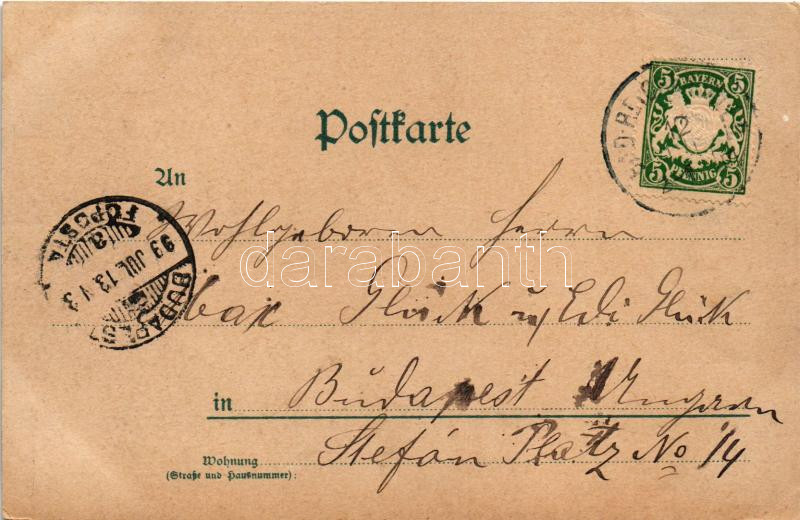 5 BAYERN 5
5 PFENNIG 5
Postkarte
An
Wohlgeborn Herrn
Max Glück u/ Edi Glück
in Budapest Ungarn
Stefán Platz No 14
Wohnung
(Straße und Hausnummer):
BUDAPEST
FŐPOSTA
99 JUL 13
darabanth